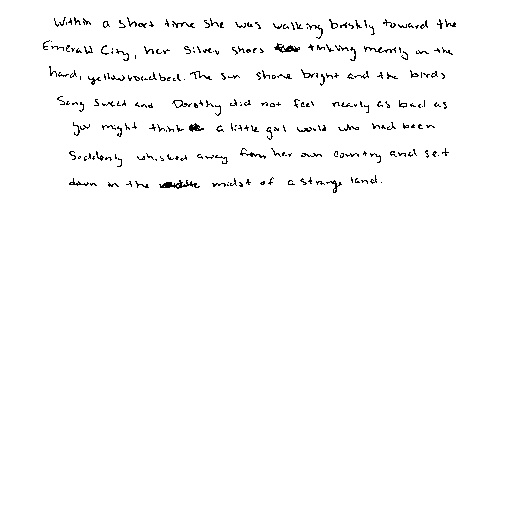 Within a short time she was walking briskly toward the
Emerald City, her Silver Shoes tinkling merrily on the
hard, yellow roadbed. The sun shone bright and the birds
Sang Sweet and Dorothy did not feel nearly as bad as
you might think a little girl would who had been
Suddenly whisked away from her own country and set
down in the midst of a strange land.